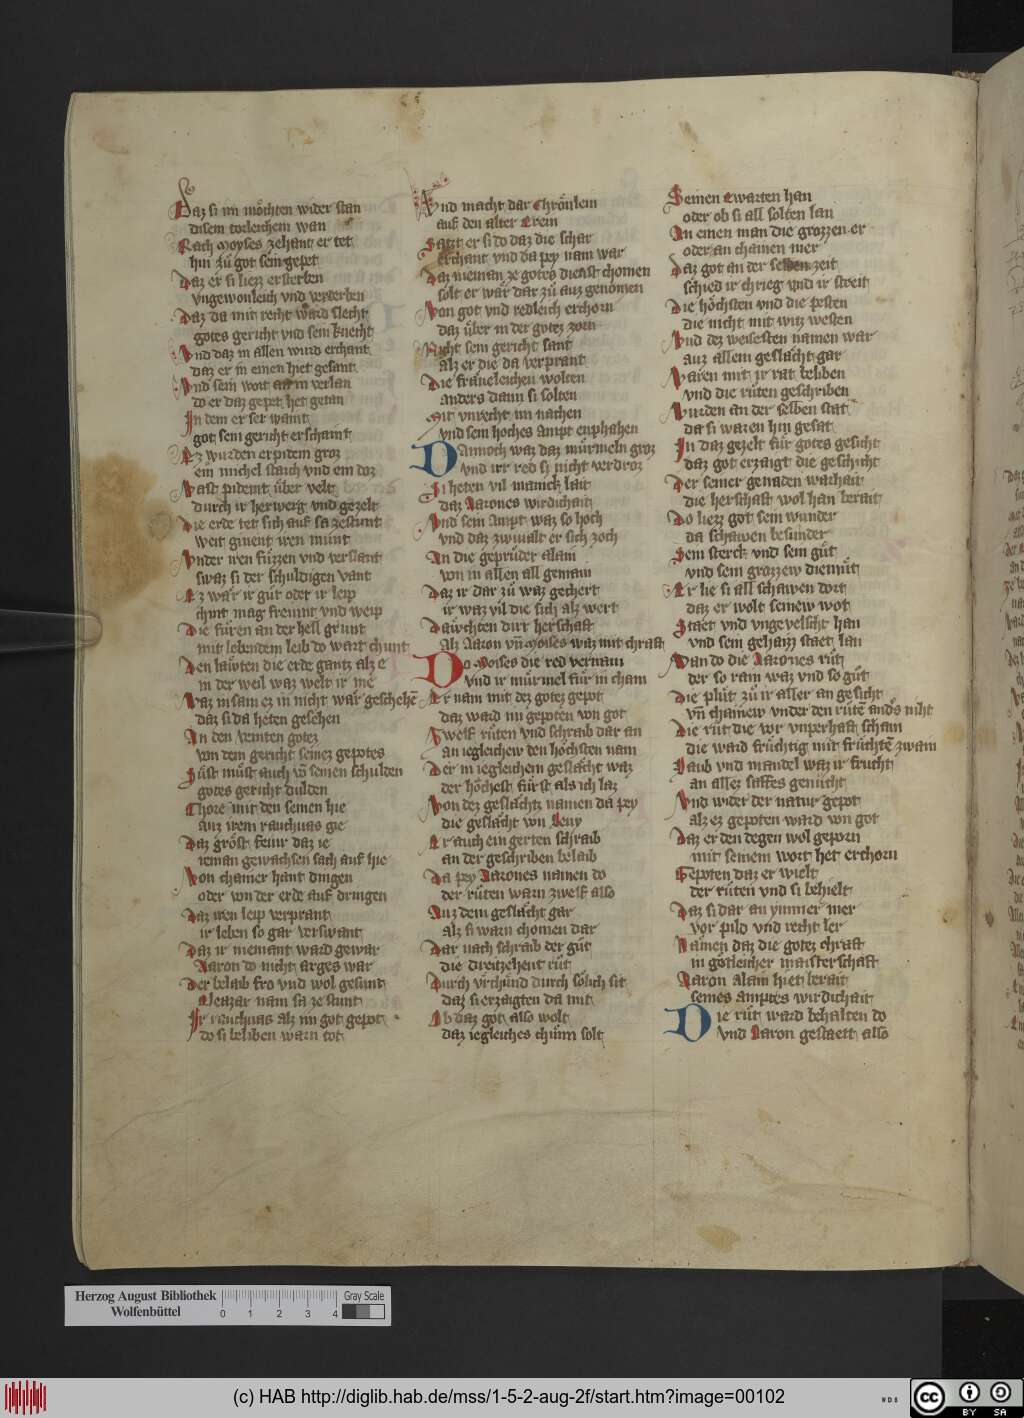 Daz si im möchten wider stan
disem torleichem wan
Nach moyses zehant er tet
hin zů got sein gepet
Daz er si liezz ersterben
vngewonleich vnd verderben
Daz da mit recht ward slecht
gotes gericht vnd sein knecht
Vnd daz in allen wird erchant
daz er in einen hiet gesant
Vnd sein wort an im verlan
do er daz gepet het getan
In dem er ser waint
got sein gericht erschaint
Ez wurden erpidem groz
ein michel staub vnd ein doz
Vast pidemt über velt
durch ir herwerg vnd gezelt
Die erde tet sich auf sa zestunt
weit ginent iren munt
Vnder iren füzzen vnd verslant
swaz si der schuldigen vant
Ez wär ir gůt oder ir leip
chint mag freunt vnd weip
Die fůren an der hell grunt
mit lebendem leib do wart chunt
Den läwten die erde gantz alz e
in der weil waz welt ir me
Waz insam ez in nicht wär geschehē
daz si da heten gesehen
An den veinten gotez
von dem gericht seinez gepotes
Süst můst auch võ seinen schulden
gotes gericht dulden
Chore mit den seinen hie
auz irem rauchuas gie
Daz gröst feuir daz ie
ieman gewachsen sach auf hie
Von chainer hant dingen
oder von der erde auf dringen
Daz iren leip verprant
ir leben so gar verswant
Daz ir niemant ward gewar
Aaron do nicht arges war
Der belaib fro vnd wol gesunt
Eleazar nam sa ze stunt
Ir rauchuas alz im got gepot
do si beliben warn tot
Vnd macht dar Chrönlein
auf den alter Erein
Satzt er si do daz die schar
Erchant vnd da pey nam war
Daz nieman ze gotes dienst chomen
solt er wär dar zů auz genomen
Von got vnd redleich erchorn
daz über in der gotez zorn
Nicht sein gericht sant
alz er die da verprant
Die fräueleichen wolten
anders dann si solten
Mit vnrecht im nachen
vnd sein hoches ampt enphahen
Dannoch waz daz mürmeln groz
vnd irr red si nicht verdroz
Si heten vil manick lait
daz Aarones wirdichait
Vnd sein Ampt waz so hoch
vnd daz zwiualt er sich zoch
An die geprüder alain
von in allen all gemain
Daz ir dar zů waz gechert
ir waz vil die sich alz wert
Dawchten dirr herschaft
Alz Aaron vñ Moises waz mit chraft
Do Moises die red vernam
vnd ir mürmel für in cham
Er nam mit dez gotez gepot
daz ward im gepoten von got
Zwelf rüten vnd schraib dar an
an iegleichew den höchsten nam
Der in iegleichem geslächt waz
der höchest fürst als ich laz
Von dez geslächtz namen da pey
die geslächt von Leuy
Er auch ein gerten schraib
an der geschriben belaib
Da pey Aarones namen do
der rüten warn zwelf also
Auz dem geslächt gar
alz si warn chomen dar
Dar nach schraib der gůt
die dreitzehent růt
Durch vrchünd durch sölich sit
daz si erzaigten da mit
Ob daz got also wolt
daz iegleiches chünn solt
Seinen Ewarten han
oder ob si all solten lan
An einen man die grozzen er
oder an chainen mer
Daz got an der selben zeit
schied ir chrieg vnd ir streit
Die höchsten vnd die pesten
die nicht mit witz westen
Vnd dez weisesten namen war
auz allem geslächt gar
Waren mit ir rat beliben
vnd die rüten geschriben
Wurden an der selben stat
da si waren hin gesat
In daz gezelt für gotes gesicht
daz got erzaigt die geschicht
Der seiner genaden warhait
die herschaft wol han berait
Do liezz got sein wunder
da schawen besunder
Sein sterck vnd sein gůt
vnd sein grozzew diemůt
Er lie si all schawen dort
daz er wolt seinew wort
Staet vnd vngevelscht han
vnd sein gehaizz staet lan
Wan do die Aarones růt
der so ram waz vnd so gůt
Die plůt zů ir aller an gesicht
vñ chainew vnder den rutē and's niht
Die růt die vor vnperhaft scham
die ward früchtig mit früchtē zwain
Laub vnd mandel waz ir frucht
an allez saffes genücht
Vnd wider der natur gepot
alz ez gepoten ward von got
Daz er den degen wol geporn
mit seinem wort het erchorn
Gepoten daz er wielt
der rüten vnd si behielt
Daz si dar an ymmer mer
vor pild vnd recht ler
Namen daz die gotez chraft
in götleicher maisterschaft
Aaron alain hiet berait
seines amptes wirdichait
Die růt ward behalten do
vnd Aaron gestaett also
Herzog August Bibliothek
Wolfenbüttel
0 1 2 3 4
Gray Scale
(c) HAB http://diglib.hab.de/mss/1-5-2-aug-2f/start.htm?image=00102
cc BY SA